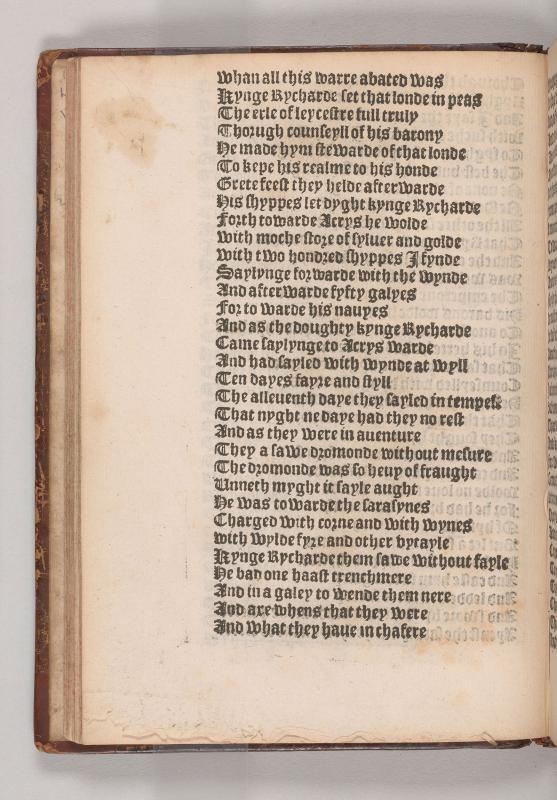 whan all this warre abated was
Kynge Rycharde set that londe in peas
The erle of leycestre full truly
Thorugh counseyll of his barony
He made hym stewarde of that londe
To kepe his realme to his honde
Grete feest they helde afterwarde
His shyppes let dyght kynge Rycharde
Forth towarde Acrys he wolde
with moche store of syluer and golde
with two hondred shyppes I fynde
Saylynge forwarde with the wynde
And afterwarde fyfty galyes
For to warde his nauyes
And as the doughty kynge Rycharde
Came saylynge to Acrys warde
And had sayled with wynde at wyll
Ten dayes fayre and styll
The alleuenth daye they sayled in tempest
That nyght ne daye had they no rest
And as they were in auenture
They a sawe dromonde without mesure
The dromonde was so heuy of fraught
Unneth myght it sayle aught
He was towarde the sarasynes
Charged with corne and with wynes
with wylde fyre and other vytayle
Kynge Rycharde them sawe without fayle
He bad one haast trenchmere
And in a galey to wende them nere
And axe whens that they were
And what they haue in chafere